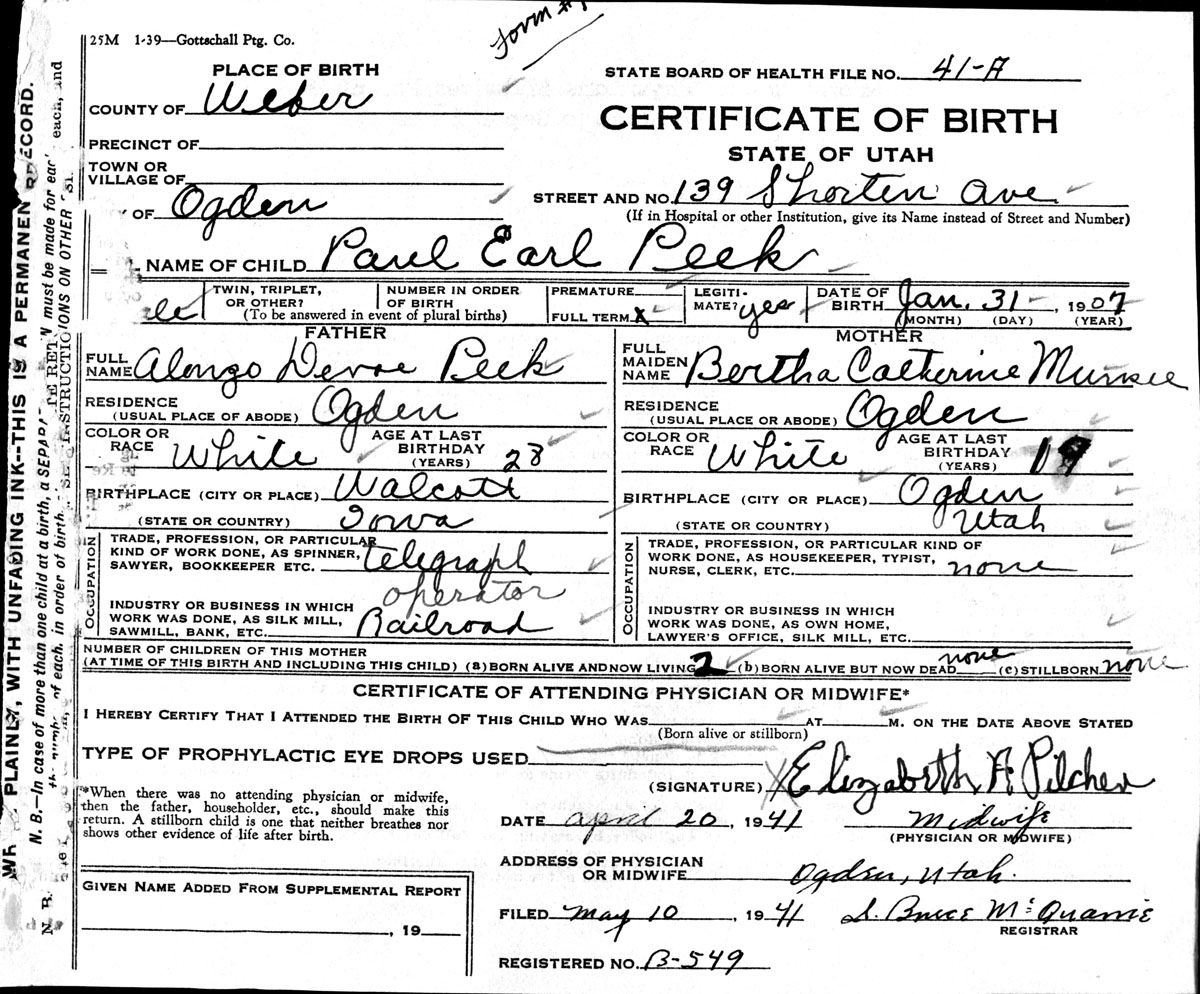 Form #1
25M 1-39—Gottschall Ptg. Co.
PLACE OF BIRTH
STATE BOARD OF HEALTH FILE NO. 41-A
COUNTY OF Weber
CERTIFICATE OF BIRTH
PRECINCT OF
STATE OF UTAH
TOWN OR
VILLAGE OF
STREET AND NO. 139 Shorten Ave.
Y OF Ogden
(If in Hospital or other Institution, give its Name instead of Street and Number)
NAME OF CHILD Paul Earl Peek
le
TWIN, TRIPLET,
OR OTHER?
NUMBER IN ORDER
OF BIRTH
(To be answered in event of plural births)
PREMATURE
FULL TERM X
LEGITI-
MATE? yes
DATE OF
BIRTH Jan. 31, 1907
(MONTH) (DAY) (YEAR)
FATHER
FULL
NAME Alonzo Devoe Peek
RESIDENCE
(USUAL PLACE OF ABODE) Ogden
COLOR OR
RACE White
AGE AT LAST
BIRTHDAY
(YEARS) 28
BIRTHPLACE (CITY OR PLACE) Walcott
(STATE OR COUNTRY) Iowa
OCCUPATION
TRADE, PROFESSION, OR PARTICULAR
KIND OF WORK DONE, AS SPINNER,
SAWYER, BOOKKEEPER ETC. telegraph
operator
INDUSTRY OR BUSINESS IN WHICH
WORK WAS DONE, AS SILK MILL,
SAWMILL, BANK, ETC. Railroad
MOTHER
FULL
MAIDEN
NAME Bertha Catherine
RESIDENCE
(USUAL PLACE OR ABODE) Ogden
COLOR OR
RACE White
AGE AT LAST
BIRTHDAY
(YEARS) 19
BIRTHPLACE (CITY OR PLACE) Ogden
(STATE OR COUNTRY) Utah
OCCUPATION
TRADE, PROFESSION, OR PARTICULAR KIND OF
WORK DONE, AS HOUSEKEEPER, TYPIST,
NURSE, CLERK, ETC. none
INDUSTRY OR BUSINESS IN WHICH
WORK WAS DONE, AS OWN HOME,
LAWYER'S OFFICE, SILK MILL, ETC.
NUMBER OF CHILDREN OF THIS MOTHER
(AT TIME OF THIS BIRTH AND INCLUDING THIS CHILD) (a) BORN ALIVE AND NOW LIVING 2 (b) BORN ALIVE BUT NOW DEAD none (c) STILLBORN none
CERTIFICATE OF ATTENDING PHYSICIAN OR MIDWIFE*
I HEREBY CERTIFY THAT I ATTENDED THE BIRTH OF THIS CHILD WHO WAS AT M. ON THE DATE ABOVE STATED
(Born alive or stillborn)
TYPE OF PROPHYLACTIC EYE DROPS USED
(SIGNATURE) X Elizabeth A Pilcher
*When there was no attending physician or midwife,
then the father, householder, etc., should make this
return. A stillborn child is one that neither breathes nor
shows other evidence of life after birth.
DATE April 20, 1941 Midwife
(PHYSICIAN OR MIDWIFE)
ADDRESS OF PHYSICIAN
OR MIDWIFE Ogden, Utah.
GIVEN NAME ADDED FROM SUPPLEMENTAL REPORT
, 19
FILED May 10, 1941 S. Bruce McQuarrie
REGISTRAR
REGISTERED NO. B-549
PLAINLY, WITH UNFADING INK--THIS IS A PERMANEN RECORD.
N. B.—In case of more than one child at a birth, a SEPARATE RETURN must be made for each, and
of each, in order of birth. INSTRUCTIONS ON OTHER SI